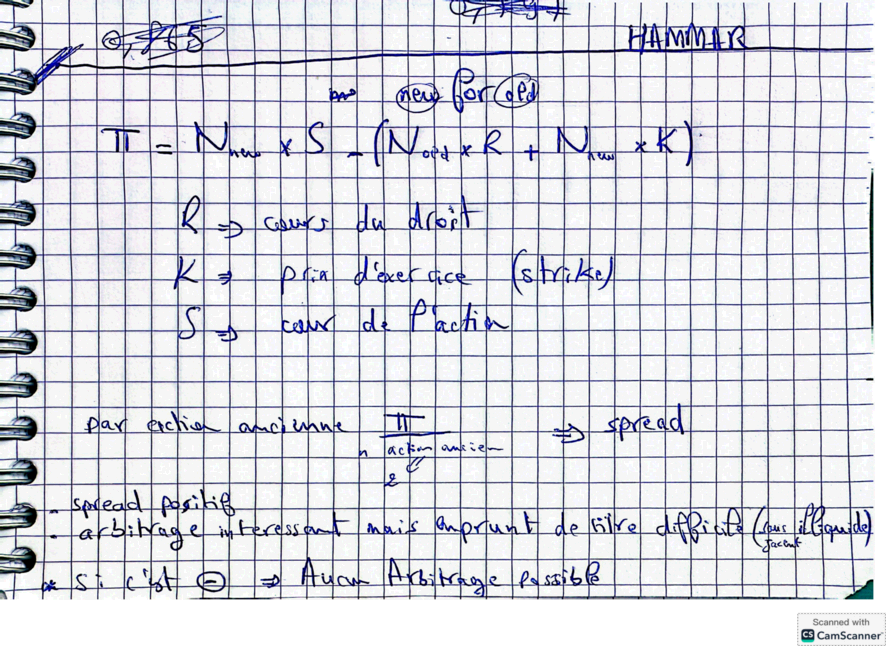 HAMMAR
new for old
Π = N_new × S - (N_old × R + N_new × K)
R ⇒ cours du droit
K ⇒ prix d'exercice (strike)
S ⇒ cour de l'action
par action ancienne Π / n action ancien ⇒ spread
2
- spread positif
- arbitrage interessant mais emprunt de titre difficile (sous jacent illiquide)
Si c'est ⊖ ⇒ Aucun Arbitrage possible
Scanned with
CS CamScanner